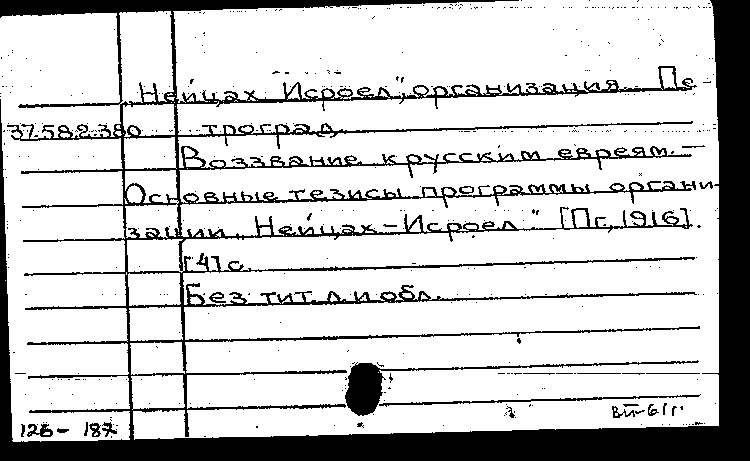 „Нейцах Исроел", организация. Пе-
37.58.2.380 троград.
Воззвание к русским евреям. –
Основные тезисы программы органи-
зации „Нейцах-Исроел" [Пг., 1916].
[4] с.
Без тит. л. и обл.
126 – 187